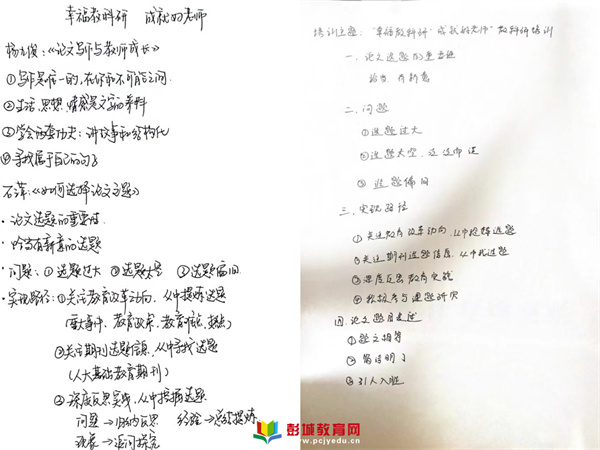 幸福教科研 成就好老师
杨九俊：《论文写作与教师成长》
①写作是唯一的，在你和不可能之间
②生活、思想、情感是文章的养料
③学会两套功夫：讲故事和结构化
④寻找属于自己的句子
石萍：《如何选择论文主题》
·论文选题的重要性
·恰当有新意的选题
·问题：①选题过大 ②选题太空 ③选题陈旧
·实现路径：①关注教育改革动向，从中提炼选题
(重大事件、教育政策、教育
②关注期刊选题信息，从中寻找选题
(人大基础教育期刊)
③深度反思实践，从中提炼选题
问题→归纳反思 经验→总结提炼
现象→追问探究
培训主题："幸福教科研·成就好老师"教科研培训
一、论文选题的重要性
恰当 有新意
二、问题
①选题过大
②选题太空，
③选题陈旧
三、实现路径
①关注教育改革动向，从中提炼选题
②关注期刊选题信息，从中找选题
③深度反思教育实践
④积极参与课题研究
四、论文题目表述
①题文相符
②简洁明了
③引人入胜
彭城教育网
www.pcjyedu.cn